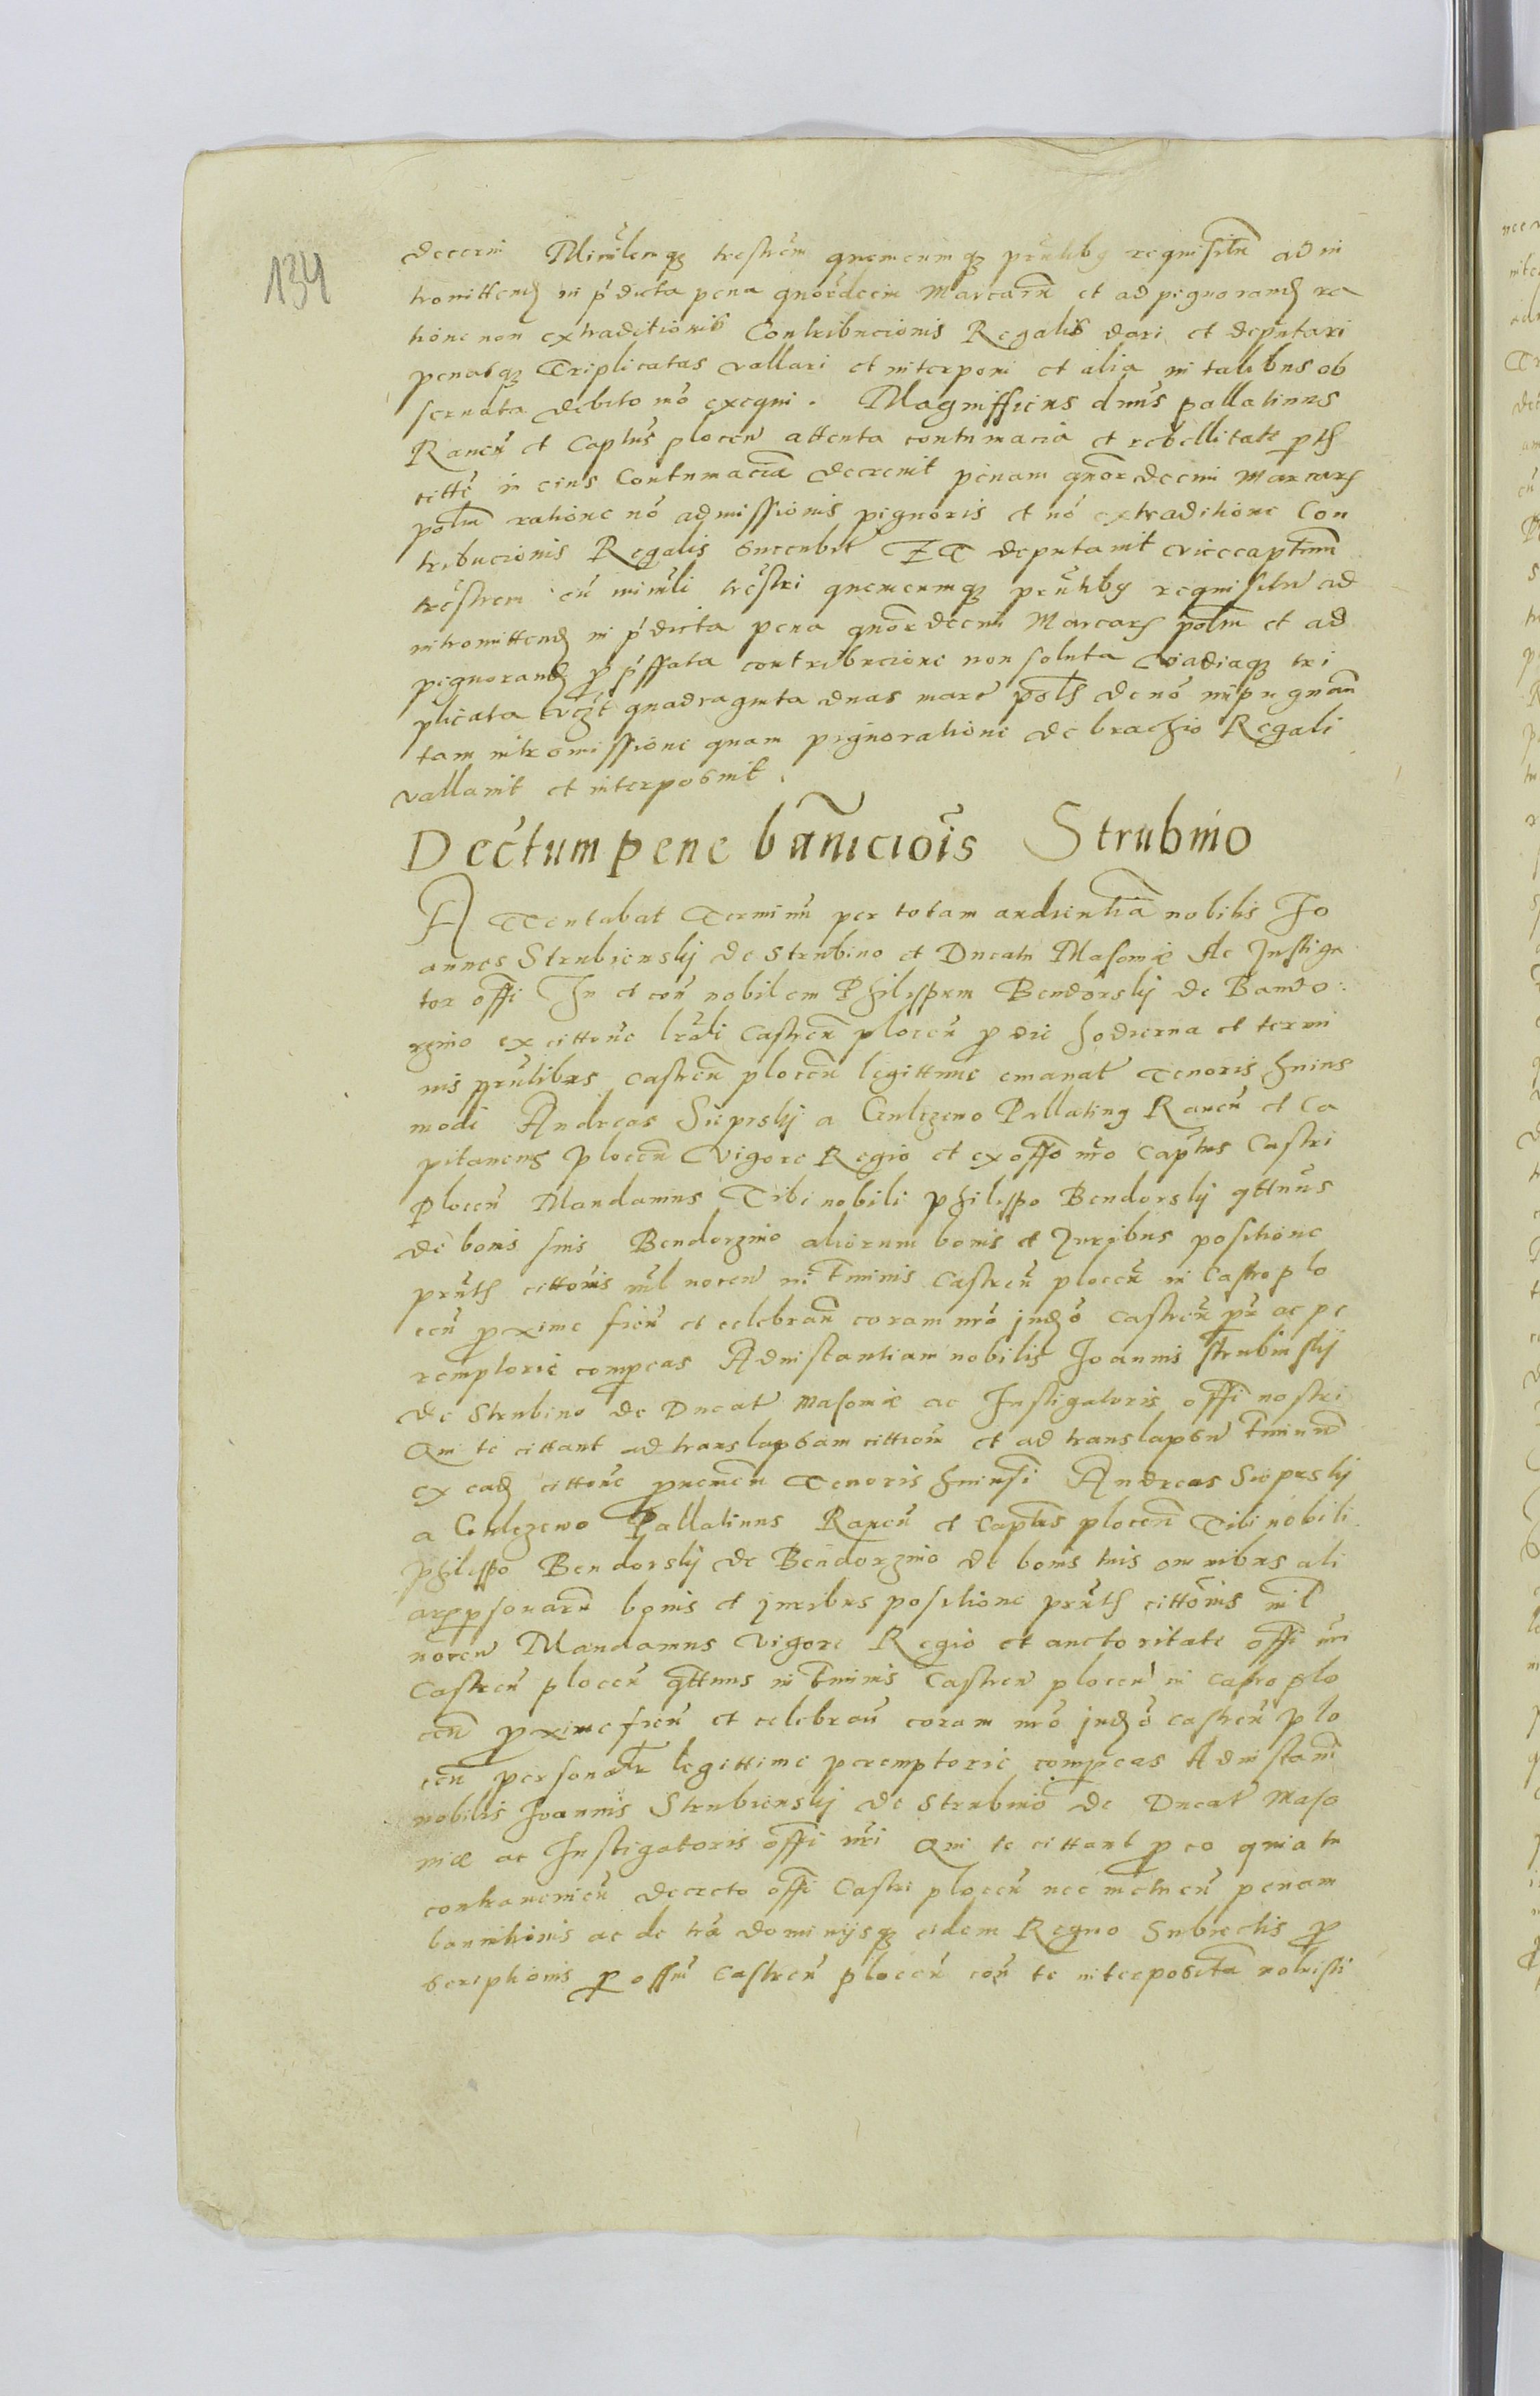 134
decerni Mirͫlemqꝫ trestrem quemcumqꝫ prntibꝫ requisitū ad in
tromittendꝫ in p̄dicta pena quordecim Marcarū et ad pignorandꝫ ra
tione non extraditionis Contribucionis Regalis dari et deputari
penasqꝫ Triplicatas vallari et interponi et alia in talibus ob
seruata debito mō exequi. Magnifficus dnūs pallatinus
Rauēn et Captūs plocen̄ attenta contumacia et rebellitate p̄tis
citte in eius Contumaciā decreuit penam quordecim Marcarꝫ
polm ratione nō admissionis pignoris et nō extraditione Con
tribucionis Regalis Sucubit ET deputauit vicecaptneum
trestrem cū minrli trestri quemcumqꝫ prntibꝫ requisitū ad
intromittendꝫ in p̄dicta pena quordecim Marcarꝫ polm et ad
pignorandꝫ ꝓ p̄ffata contribucione non soluta Vadiaqꝫ tri
plicata vꝫt quadraginta duas marc̄ pols de nō inpugnan̄
tam intromissione quam pignoratione de brachio Regali
vallauit et interposuit.
Decr̄tum pene bañicioīs Strubino
ATTentabat Terminū per totam audientiā nobilis Jo
annes Strubienskij de Strubino et Ducatu Masoniæ Ac Instiga
tor offi In et con̄ nobilem Philippum Bendorskij de Bando
rzino ex cittone lrāli Castren̄ plocen̄ ꝓ die hodierna et termi
nis prntibus castren̄ plocen̄ legittime emanat Tenoris huius
modi Andreas Sieprskij a Gulczewo Pallatinꝫ Rauen̄ et Ca
pitaneus plocen̄ Vigore Regio et ex offo nr̄o Captus Castri
Plocen̄ Mandamus Tibi nobili philippo Bendorskij qttnus
de bonis suis Bendorzino aliorum bonis et Juribus positione
prntis cittonis nil nocen̄ in tminis Castren̄ plocen̄ in Castro plo
cen̄ ꝓxime fien̄ et celebran̄ coram nr̄o judꝫo castren̄ pr̄ ac pe
remptorie compeas Ad instantiam nobilis Joannis Strubinskij
de Strubino de Ducat̄ Masoniæ ac Instigatoris offi nostri
Qui te cittant ad translapsam cittion̄ et ad translapsū tminū
ex eadꝫ cittone ꝓuenien̄ Tenoris huiusi Andreas Sieprskij
a Gulczewo Pallatinus Rauen̄ et Captus plocen̄ Tibi nobili
Philippo Bendorskij de Bendorzino de bonis tuis omnibus ali
arꝫ psonarū bonis et juribus positione prntis cittonis nil
nocen̄ Mandamus Vigore Regio et auctoritate offi nr̄i
Castren̄ plocen̄ qttnus in tminis Castren̄ plocen̄ in castro plo
cen̄ ꝓxime fien̄ et celebran̄ coram nr̄o judꝫo castren̄ plo
cen̄ personalr legittime peremptorie compeas Ad instan̄
nobilis Joannis Strubienskij de Strubino de Ducat̄ Maso
niæ ac Instigatoris offi nr̄i Qui te cittant ꝓ eo quia tu
contrauenien̄ decreto offi Castri plocen̄ nec metuen̄ penam
bannitionis ac de tra dominijsqꝫ eidem Regno Subiectis ꝓ
scriptionis ꝑ offm Castren̄ plocen̄ con̄ te interpositā noluisti